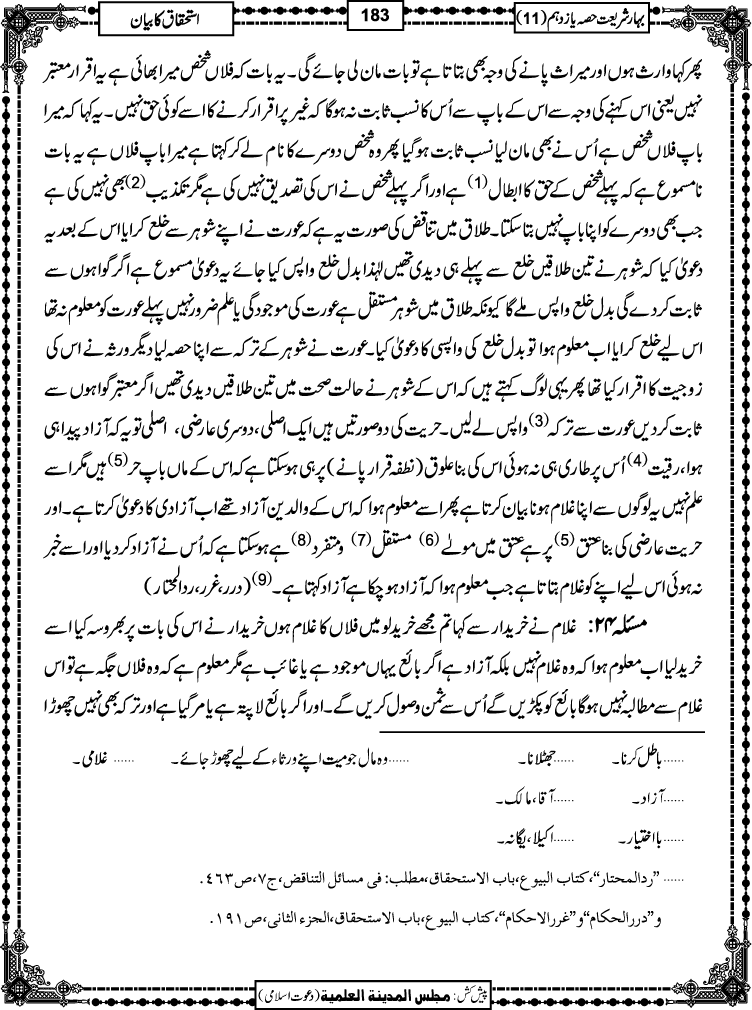 بہار شریعت حصہ یازدہم (11)
183
استحقاق کا بیان
پھر کہا وارث ہوں اور میراث پانے کی وجہ بھی بتاتا ہے تو بات مان لی جائے گی۔ یہ بات کہ فلاں شخص میرا بھائی ہے یہ اقرار معتبر
نہیں یعنی اس کہنے کی وجہ سے اس کے باپ سے اُس کا نسب ثابت نہ ہوگا کہ غیر پر اقرار کرنے کا اسے کوئی حق نہیں۔ یہ کہا کہ میرا
باپ فلاں شخص ہے اُس نے بھی مان لیا نسب ثابت ہوگیا پھر وہ شخص دوسرے کا نام لے کر کہتا ہے میرا باپ فلاں ہے یہ بات
نا مسموع ہے کہ پہلے شخص کے حق کا ابطال (1) ہے اور اگر پہلے شخص نے اس کی تصدیق نہیں کی ہے مگر تکذیب (2) بھی نہیں کی ہے
جب بھی دوسرے کو اپنا باپ نہیں بتا سکتا۔ طلاق میں تناقض کی صورت یہ ہے کہ عورت نے اپنے شوہر سے خلع کرایا اس کے بعد یہ
دعویٰ کیا کہ شوہر نے تین طلاقیں خلع سے پہلے ہی دیدی تھیں لہٰذا بدل خلع واپس کیا جائے یہ دعویٰ مسموع ہے اگر گواہوں سے
ثابت کردے گی بدل خلع واپس ملے گا کیونکہ طلاق میں شوہر مستقل ہے عورت کی موجودگی یا علم ضرور نہیں پہلے عورت کو معلوم نہ تھا
اس لیے خلع کرایا اب معلوم ہوا تو بدل خلع کی واپسی کا دعویٰ کیا۔ عورت نے شوہر کے ترکہ سے اپنا حصہ لیا دیگر ورثہ نے اس کی
زوجیت کا اقرار کیا تھا پھر یہی لوگ کہتے ہیں کہ اس کے شوہر نے حالت صحت میں تین طلاقیں دیدی تھیں اگر معتبر گواہوں سے
ثابت کردیں عورت سے ترکہ (3) واپس لے لیں۔ حریت کی دو صورتیں ہیں ایک اصلی، دوسری عارضی، اصلی تو یہ کہ آزاد پیدا ہی
ہوا، رقیت (4) اُس پر طاری ہی نہ ہوئی اس کی بنا علوق (نطفہ قرار پانے) پر ہی ہوسکتا ہے کہ اس کے ماں باپ حر (5) ہیں مگر اسے
علم نہیں یہ لوگوں سے اپنا غلام ہونا بیان کرتا ہے پھر اسے معلوم ہوا کہ اس کے والدین آزاد تھے اب آزادی کا دعویٰ کرتا ہے۔ اور
حریت عارضی کی بنا عتق (5) پر ہے عتق میں مولےٰ (6) مستقل (7) و متفرد (8) ہے ہوسکتا ہے کہ اُس نے آزاد کردیا اور اسے خبر
نہ ہوئی اس لیے اپنے کو غلام بتاتا ہے جب معلوم ہوا کہ آزاد ہوچکا ہے آزاد کہتا ہے۔ (9) (درر، غرر، ردالمحتار)
مسئلہ ۲۴: غلام نے خریدار سے کہا تم مجھے خرید لو میں فلاں کا غلام ہوں خریدار نے اس کی بات پر بھروسہ کیا اسے
خرید لیا اب معلوم ہوا کہ وہ غلام نہیں بلکہ آزاد ہے اگر بائع یہاں موجود ہے یا غائب ہے مگر معلوم ہے کہ وہ فلاں جگہ ہے تو اس
غلام سے مطالبہ نہیں ہوگا بائع کو پکڑیں گے اُس سے ثمن وصول کریں گے۔ اور اگر بائع لاپتہ ہے یا مرگیا ہے اور ترکہ بھی نہیں چھوڑا
...... باطل کرنا۔ ...... جھٹلانا۔ ...... وہ مال جو میت اپنے ورثاء کے لیے چھوڑ جائے۔ ...... غلامی۔
...... آزاد۔ ...... آقا، مالک۔
...... بااختیار۔ ...... اکیلا، یگانہ۔
...... "ردالمحتار"، کتاب البیوع، باب الاستحقاق، مطلب: فی مسائل التناقض، ج۷، ص۴۶۳.
و"دررالحکام" و"غررالاحکام"، کتاب البیوع، باب الاستحقاق، الجزء الثانی، ص۱۹۱.
پیش کش: مجلس المدینة العلمیة (دعوت اسلامی)